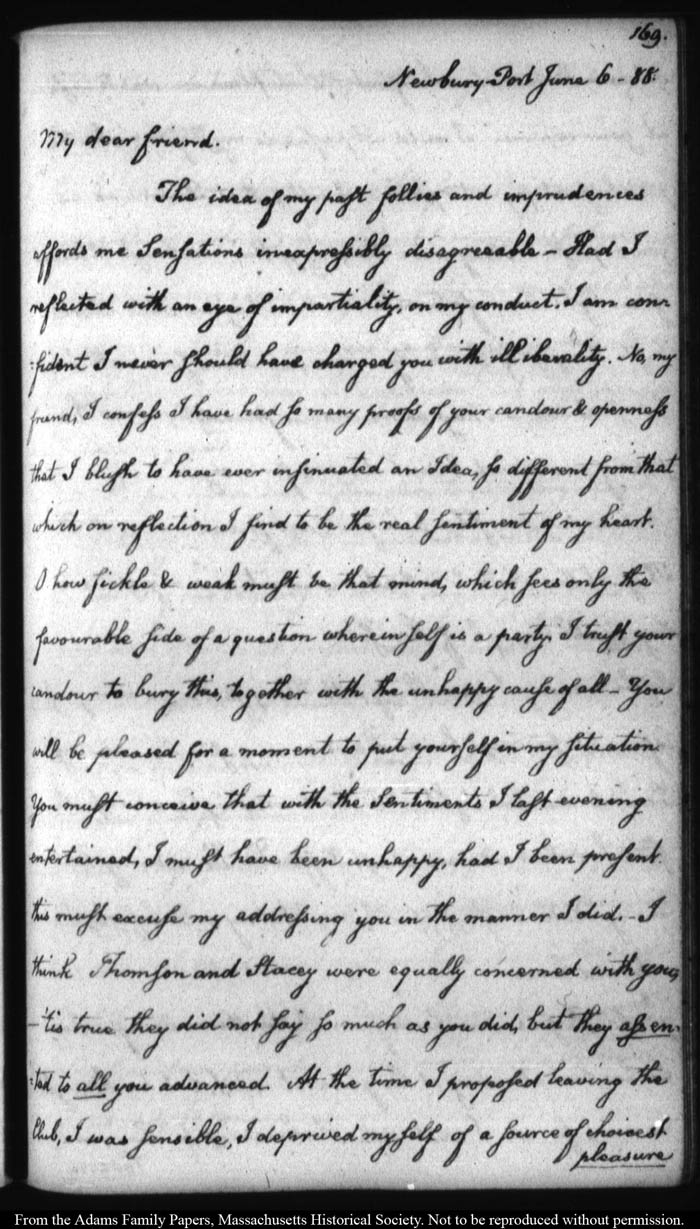 169.
Newbury-Port June 6 - 88.
My dear friend.
The idea of my past follies and imprudences
affords me Sensations inexpressibly disagreeable - Had I
reflected with an eye of impartiality, on my conduct, I am con-
:fident I never should have charged you with illiberality. No, my
friend, I confess I have had so many proofs of your candour & openness
that I blush to have ever insinuated an Idea, so different from that
which on reflection I find to be the real sentiment of my heart.
O how fickle & weak must be that mind, which sees only the
favourable side of a question wherein self is a party. I trust your
candour to bury this, together with the unhappy cause of all - You
will be pleased for a moment to put yourself in my situation
You must conceive that with the Sentiments I last evening
entertained, I must have been unhappy, had I been present.
this must excuse my addressing you in the manner I did. - I
think Thomson and Stacey were equally concerned with you,
- 'tis true they did not say so much as you did, but they assen-
:ted to all you advanced. At the time I proposed leaving the
Club, I was sensible, I deprived myself of a source of choicest
pleasure
From the Adams Family Papers, Massachusetts Historical Society. Not to be reproduced without permission.